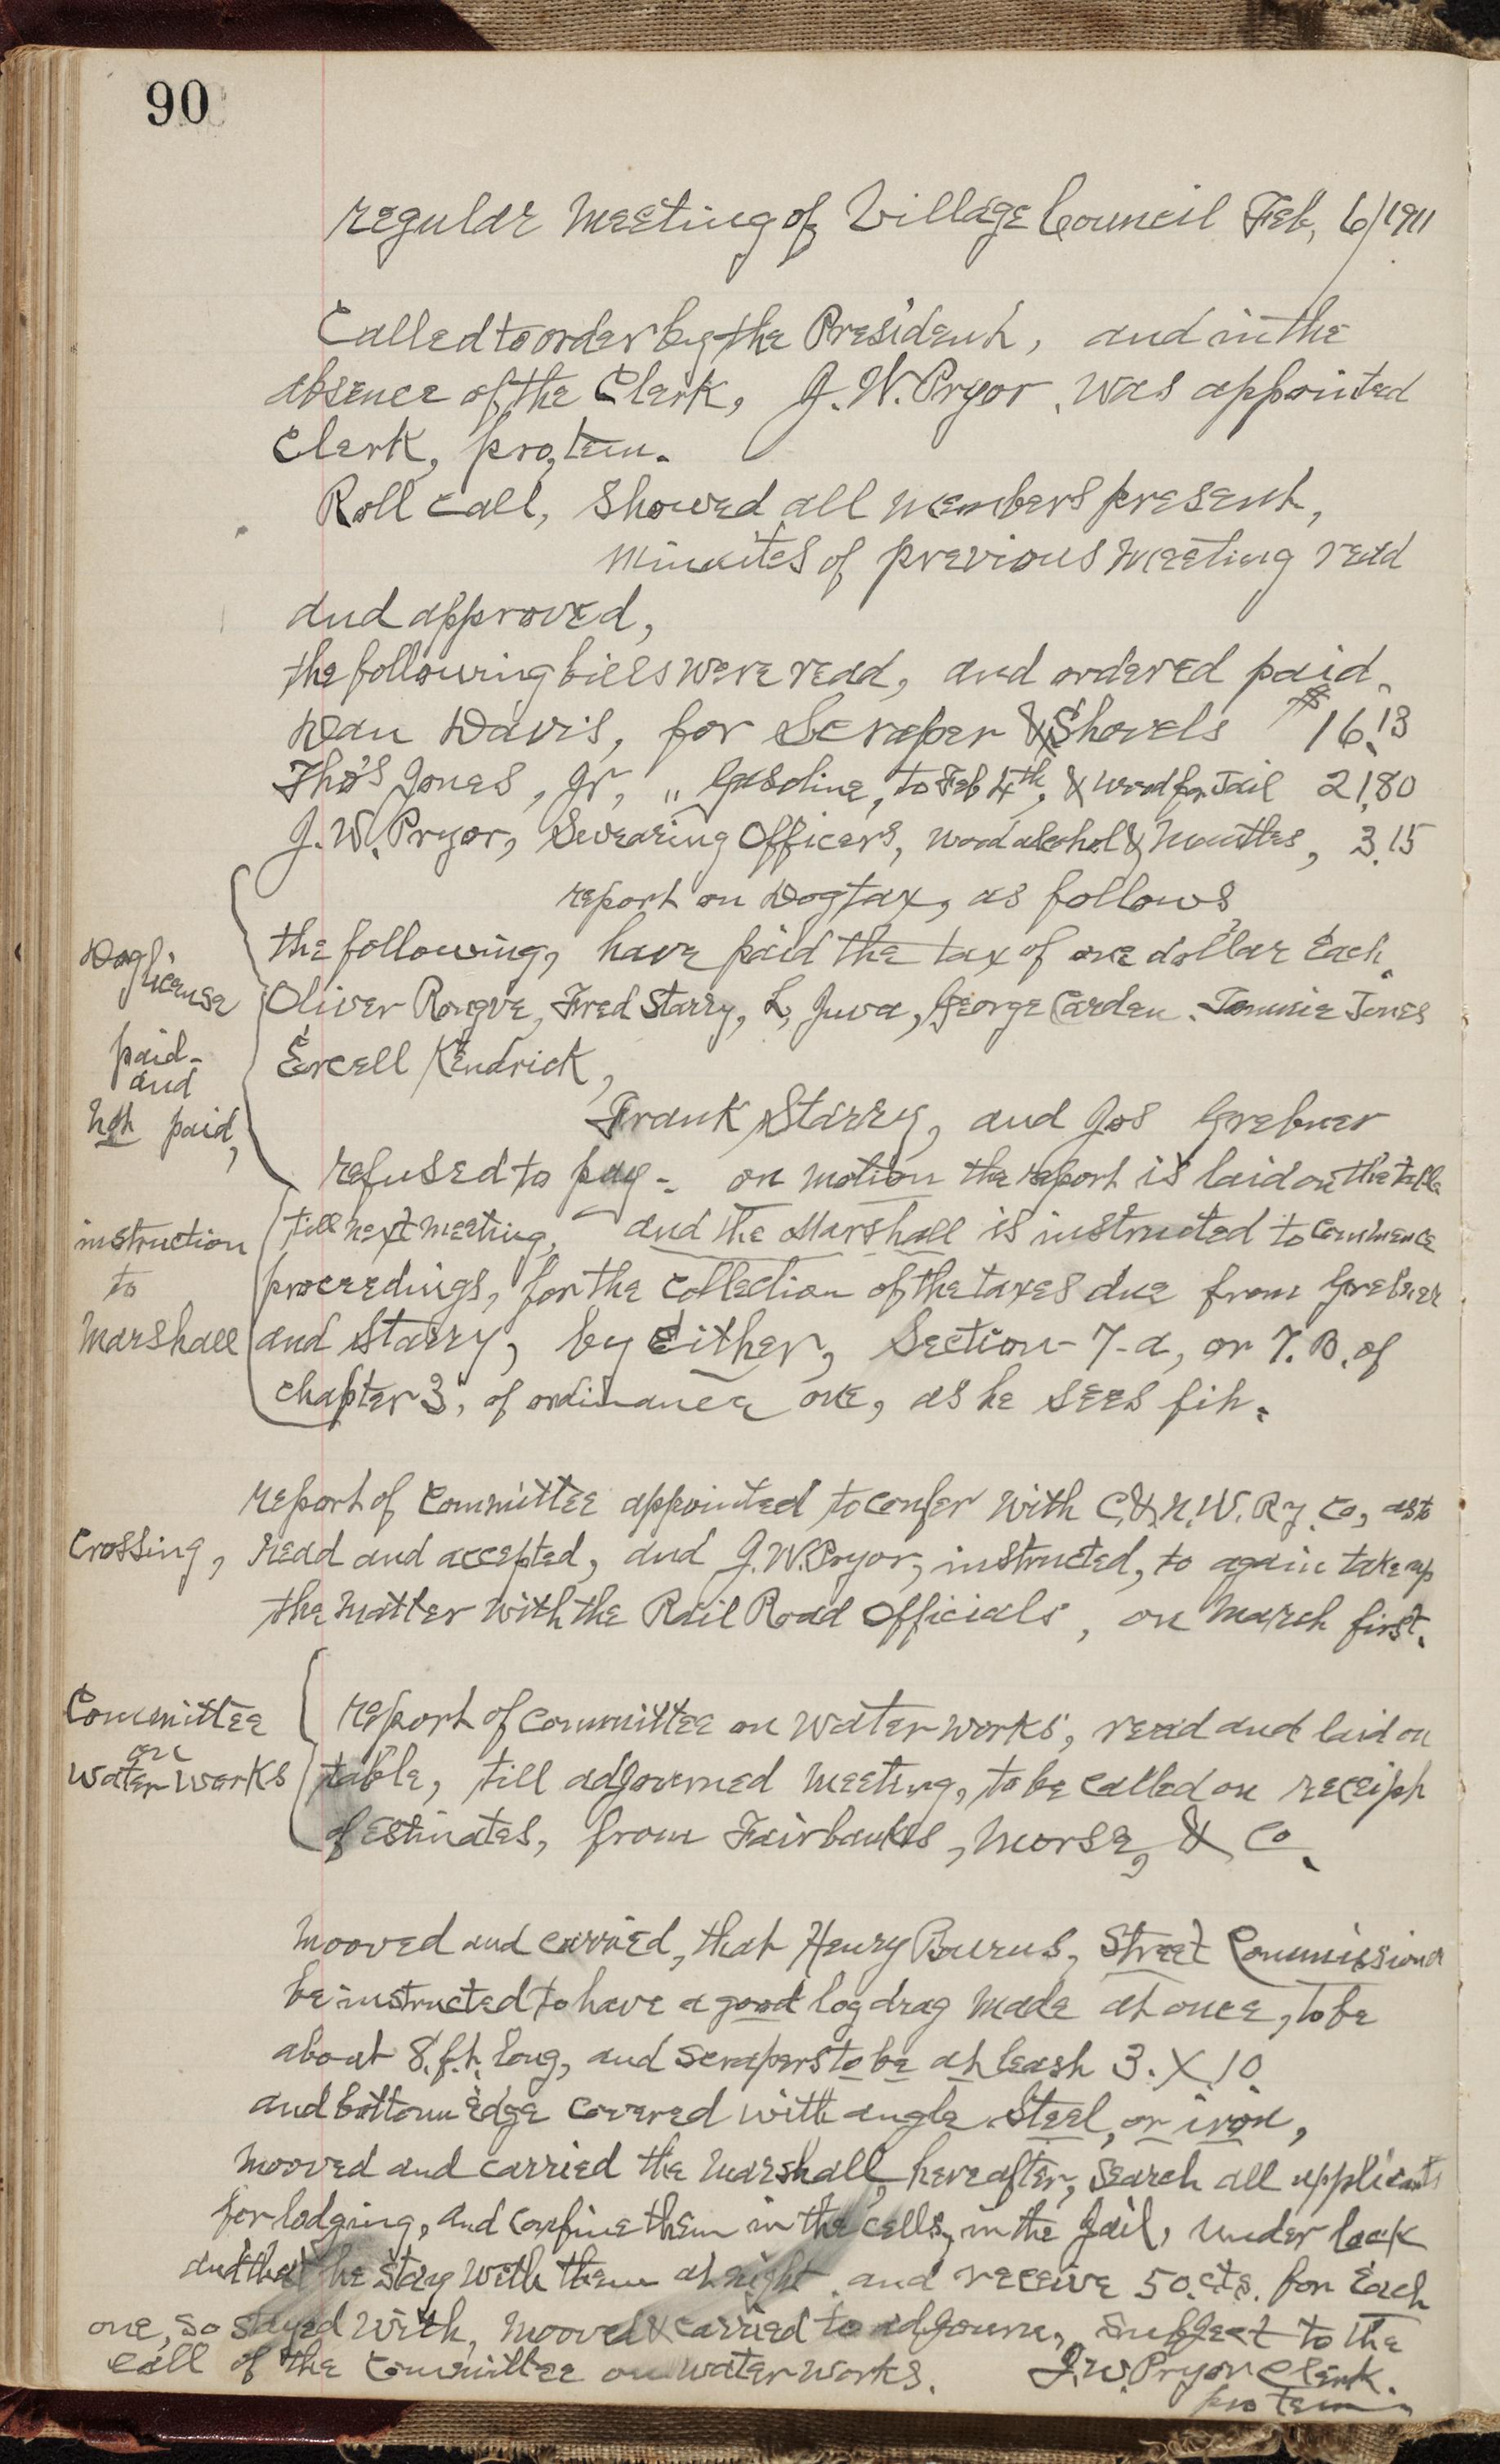 90
regular Meeting of Village Council Feb, 6/1911
Called to order by the President, and in the
absence of the Clerk, J. W. Pryor, was appointed
Clerk, pro, tem.
Roll call, Showed all members present,
Minuites of previous meeting read
and approved,
the following bills were read, and ordered paid.
Dan Davis, for Scraper & Shovels $16.13
Tho's Jones, Jr, " Gasoline, to Feb 4th, & wood for Jail 21,80
J. W. Pryor, Swearing Officers, wood alcohol & Mantles, 3.15
report on Dog tax, as follows,
Dog license
paid-
and
not paid,
the following, have paid the tax of one dollar Each.
Oliver Rongve, Fred Starry, L, Juva, George Carden. Tommie Jones
Ercell Kendrick,
Frank Starry, and Jos Grebner
refused to pay - on motion the report is laid on the table
instruction
to
Marshall
till next meeting, and the Marshall is instructed to commence
proceedings, for the collection of the taxes due from Grebner
and Starry, by Either, Section-7-a, or 7. B. of
chapter 3, of ordinance one, as he sees fit.
report of Committee appointed to confer with C. & N. W. Ry. Co, as to
Crossing, read and accepted, and J. W. Pryor, instructed, to again take up
the matter with the Rail Road Officials, on March first.
Committee
on
Water works
report of committee on water works, read and laid on
table, till adjourned meeting, to be called on receipt
of Estimates, from Fairbanks, Morse, & Co.
Mooved and carried, that Henry Bourus, Street Commissioner
be instructed to have a good log drag made at once, to be
about 8. ft. long, and scrapers to be at least 3. X 10.
and bottom Edge covered with angle Steel, or iron,
Mooved and carried the Marshall, hereafter, Search all applicants
for lodging, and confine them in the cells, in the Jail, under lock
and that he stay with them at night. and receive 50. cts. for Each
one, so stayed with, Mooved & carried to adjourn, subject to the
call of the committee on water works. J. W. Pryor Clerk.
pro tem